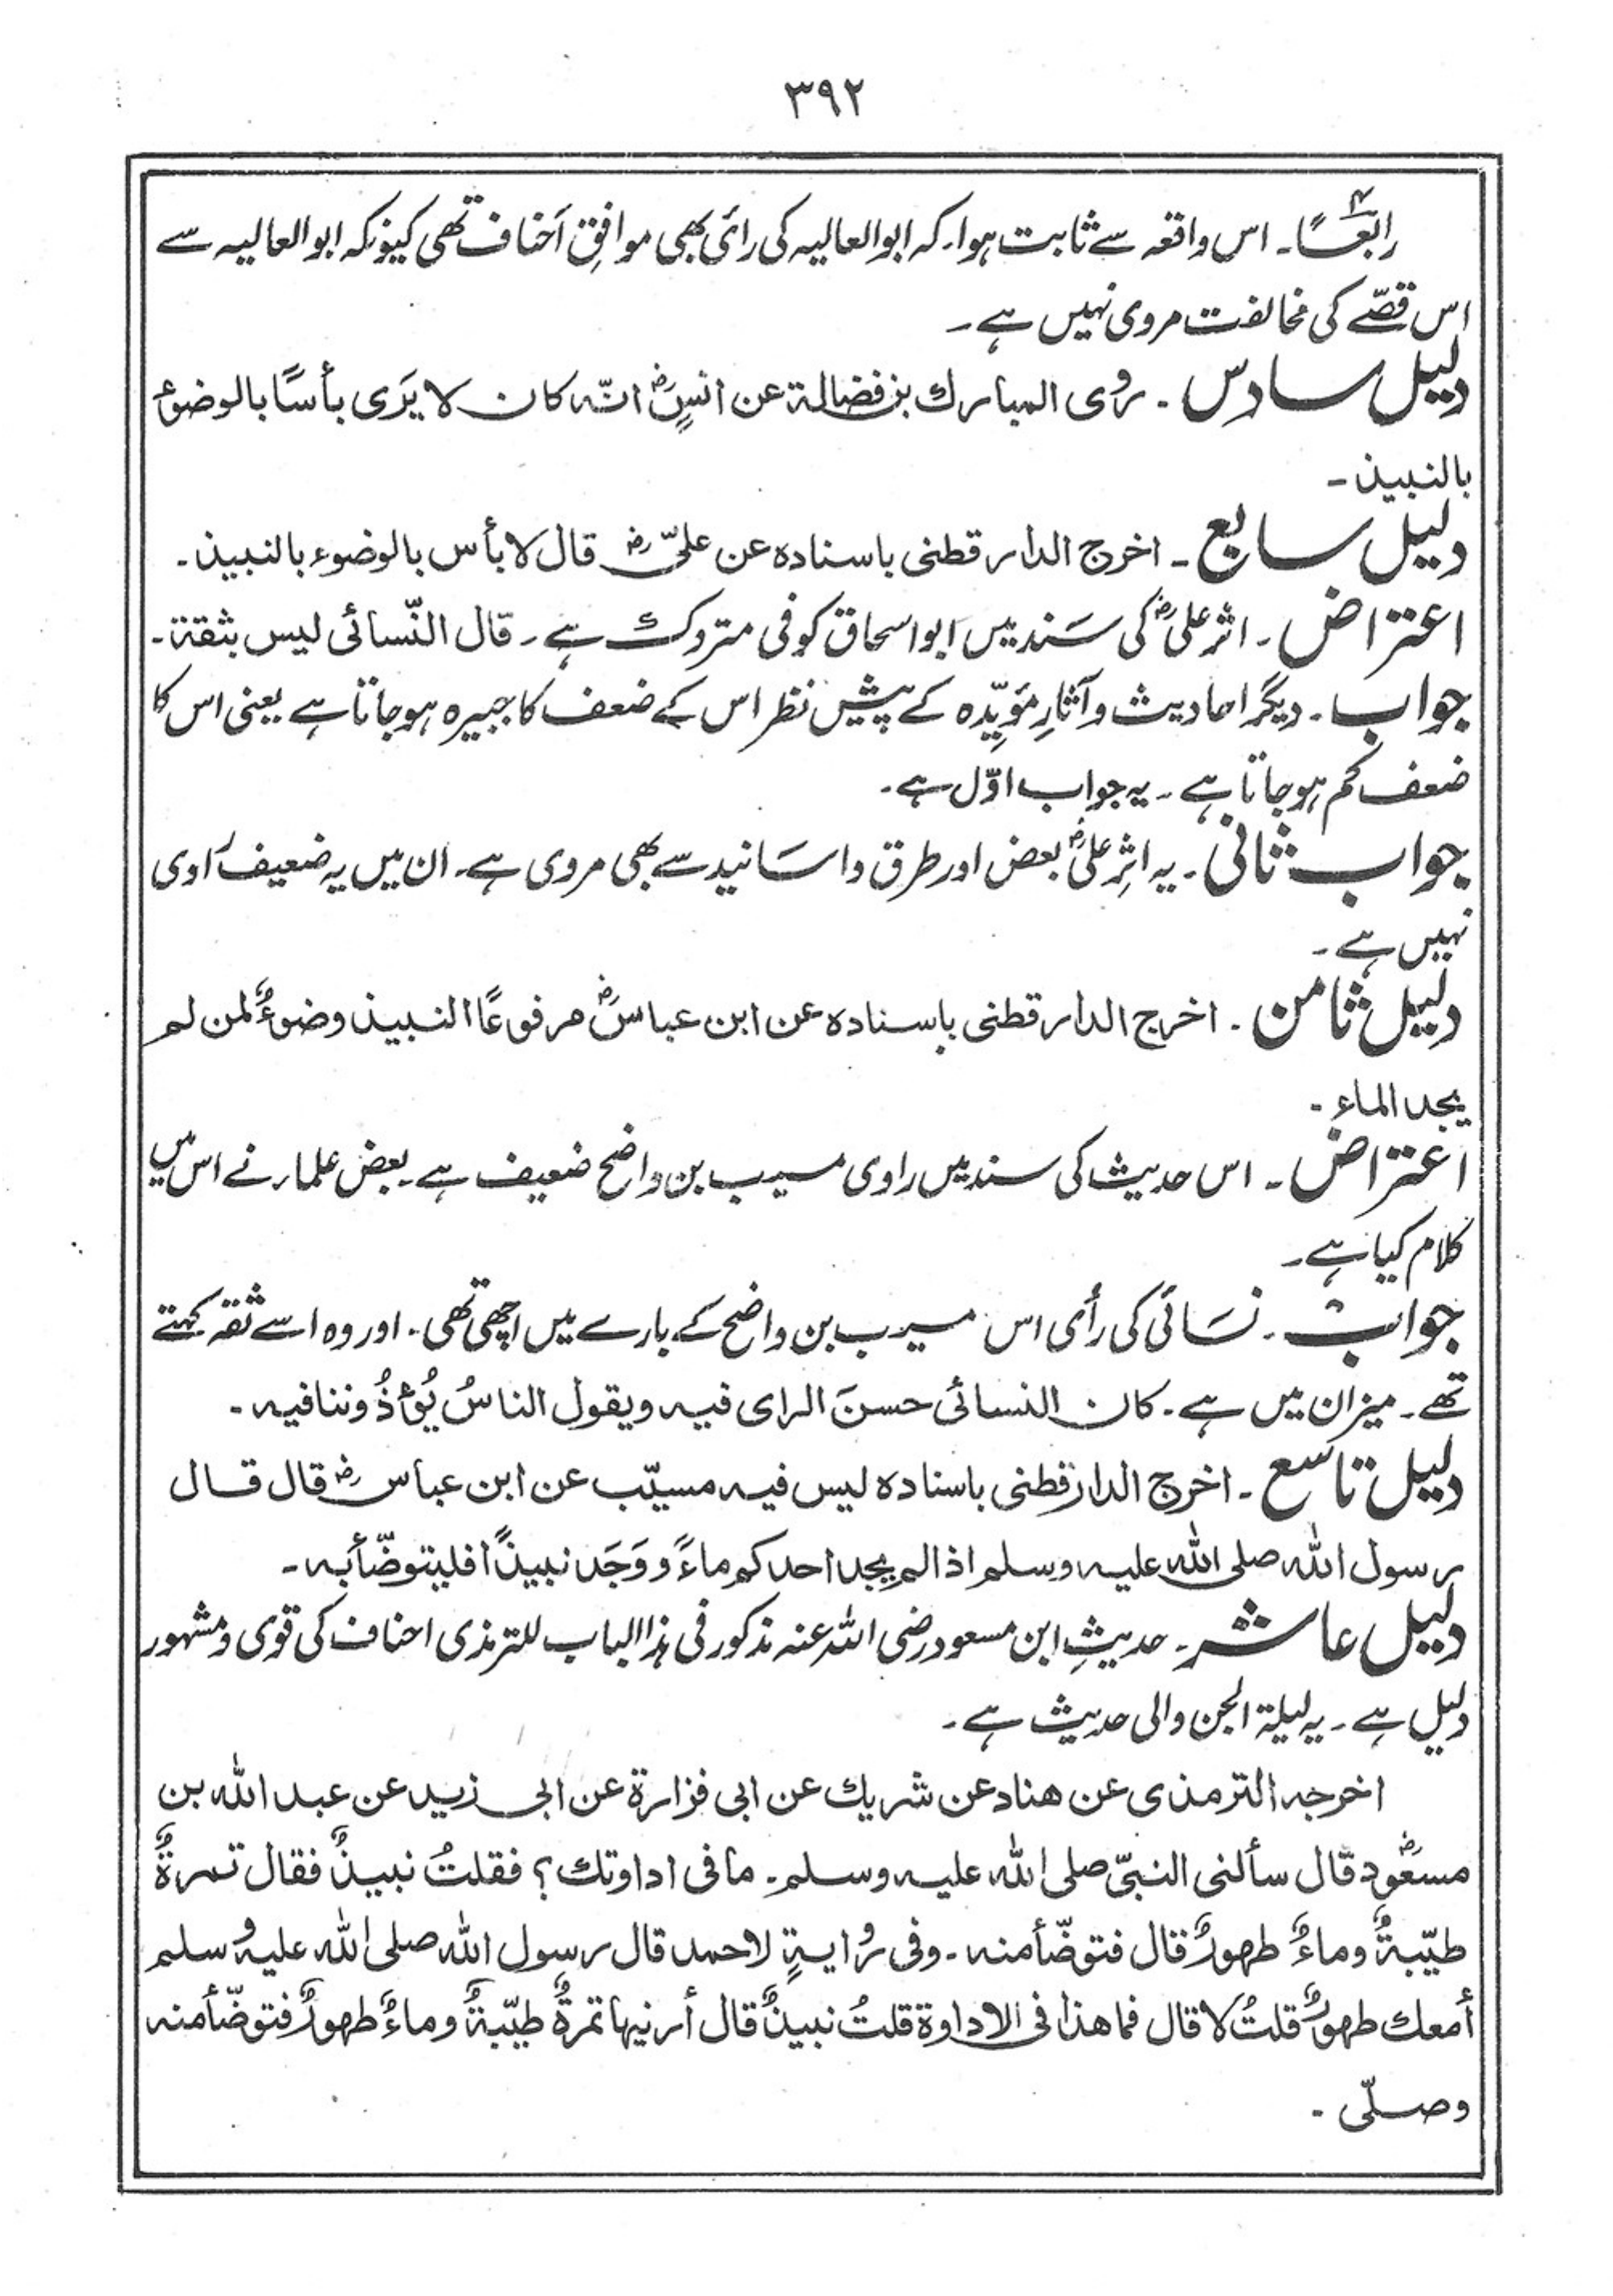 ۳۹۲
رابعًا۔ اس واقعہ سے ثابت ہوا۔ کہ ابوالعالیہ کی رائی بھی موافقِ اَحناف تھی کیونکہ ابوالعالیہ سے
اس قصّے کی مخالفت مروی نہیں ہے۔
دلیل سادس ۔ رَوی المبارک بن فضالۃ عن انسٍؓ انّہ کان لا یَرٰی بأسًا بالوضوءِ
بالنبیذ ۔
دلیل سابع ۔ اخرج الدارقطنی باسنادہ عن علیّؓ قال لا بأس بالوضوء بالنبیذ۔
اعتراض ۔ اثر علیؓ کی سَند میں ابو اسحاق کوفی متروک ہے ۔ قال النّسائی لیس بثقۃ ۔
جواب ۔ دیگر احادیث و آثارِ مؤیِّدہ کے پیشِ نظر اس کے ضعف کا جبیرہ ہوجاتا ہے یعنی اس کا
ضعف کم ہوجاتا ہے ۔ یہ جواب اوّل ہے۔
جواب ثانی ۔ یہ اثرِ علیؓ بعض اور طرق و اسَانید سے بھی مروی ہے۔ ان میں یہ ضعیف رَاوی
نہیں ہے ۔
دلیل ثامن ۔ اخرج الدارقطنی باسنادہ عن ابن عباسؓ مرفوعًا النبیذ وضوءٌ لمن لم
یجد الماء ۔
اعتراض ۔ اس حدیث کی سند میں راوی مسیب بن واضح ضعیف ہے ۔ بعض علماء نے اس میں
کلام کیا ہے۔
جواب ۔ نسَائی کی رأی اس مسیب بن واضح کے بارے میں اچھی تھی ۔ اور وہ اسے ثقہ کہتے
تھے ۔ میزان میں ہے ۔ کان النسائی حسنَ الرای فیہ ویقول الناسُ یُؤذُوننا فیہ ۔
دلیل تاسع ۔ اخرج الدارقطنی باسنادہ لیس فیہ مسیّب عن ابن عباسؓ قال قال
رسول اللہ صلی اللہ علیہ وسلم اذا لم یجد احدکم ماءً و وَجَد نبیذًا فلیتوضّأ بہ ۔
دلیل عاشر ۔ حدیثِ ابن مسعود رضی اللہ عنہ مذکور فی ہذا الباب للترمذی احناف کی قوی و مشہور
دلیل ہے ۔ یہ لیلۃ الجن والی حدیث ہے ۔
اخرجہ الترمذی عن ھناد عن شریک عن ابی فزارۃ عن ابی زید عن عبد اللہ بن
مسعودؓ قال سألنی النبیّ صلی اللہ علیہ وسلم ۔ ما فی اداوتک ؟ فقلتُ نبیذٌ فقال تمرۃٌ
طیّبۃٌ وماءٌ طھورٌ قال فتوضّأ منہ ۔ وفی رِوایۃٍ لاحمد قال رسول اللہ صلی اللہ علیہ وسلم
أمعک طھورٌ قلتُ لا قال فما ھذا فی الاداوۃ قلتُ نبیذٌ قال أرنیھا تمرۃٌ طیّبۃٌ وماءٌ طھورٌ فتوضّأ منہ
وصلّی ۔